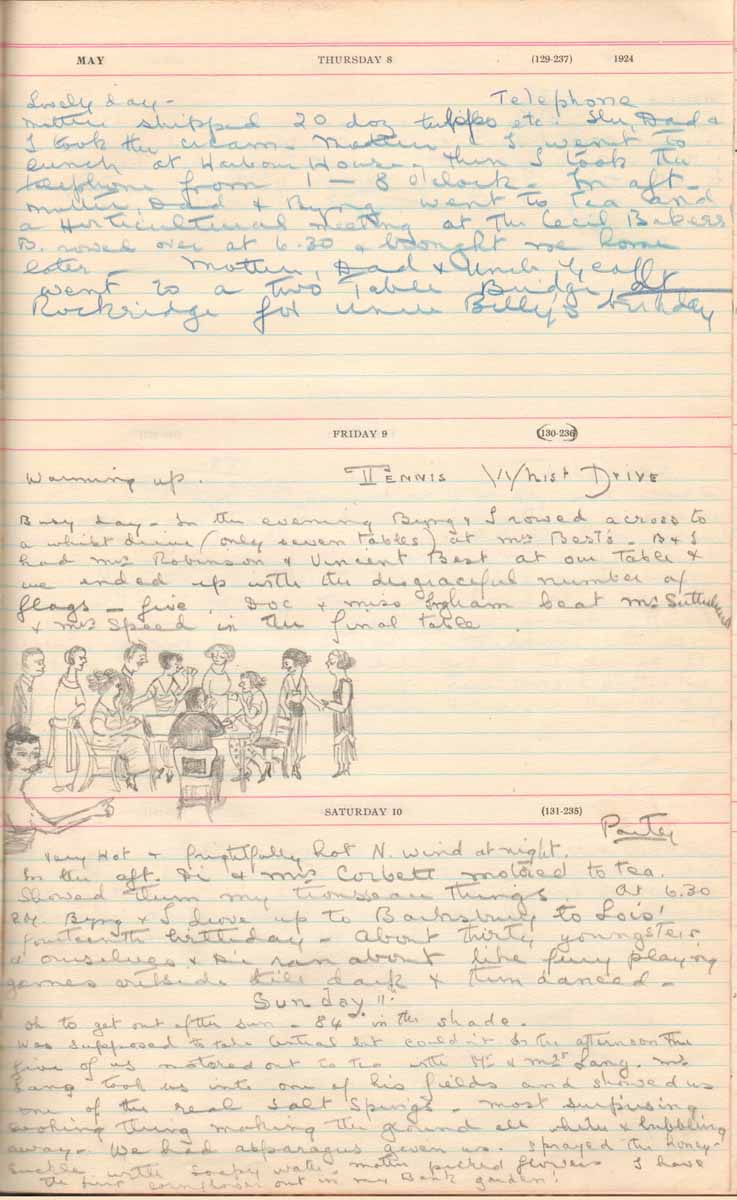 MAY THURSDAY 8 (129-237) 1924
Lovely day - Telephone
Mother shipped 20 doz tulips etc. She, Dad &
I took the cream. Mother & I went to
lunch at Harbour House - then I took the
telephone from 1 - 8 o'clock. In aft-
mother, Dad & Byng went to tea and
a Horticultural meeting at the Cecil Bakers
B. rowed over at 6.30 & brought me home
later - Mother, Dad & Uncle Geoff
went to a two Table Bridge at
Rockridge for Uncle Billy's birthday
FRIDAY 9 (130-236)
Warming up. TENNIS Whist DRIVE
Busy day - In the evening Byng & I rowed across to
a whist drive (only seven tables) at Mrs Best's - B & I
had Mrs Robinson & Vincent Best at our table &
we ended up with the disgraceful number of
flags - five. Doc & Miss Ingham beat Mr Sutherland
& Mrs Speed in the final table
SATURDAY 10 (131-235)
Party
Very Hot & frightfully hot N. wind at night.
In the aft. Di & Mrs Corbett motored to tea.
Showed them my trousseau things At 6.30
Byng & I drove up to Barnsbury to Lois'
fourteenth birthday - About thirty youngsters
& ourselves & Di ran about like fury playing
games outside till dark & then danced -
Sunday 11th
Oh to get out after sun - 84° in the shade.
Was supposed to take Central but couldn't In the afternoon the
five of us motored out to tea with Mr & Mrs Lang. Mr
Lang took us into one of his fields and showed us
one of the real Salt Springs - most surprising
looking thing making the ground all white & bubbling
away - We had asparagus given us. Sprayed the honey-
suckle with soapy water - Mother picked flowers. I have
the first cornflower out in my Bank garden!